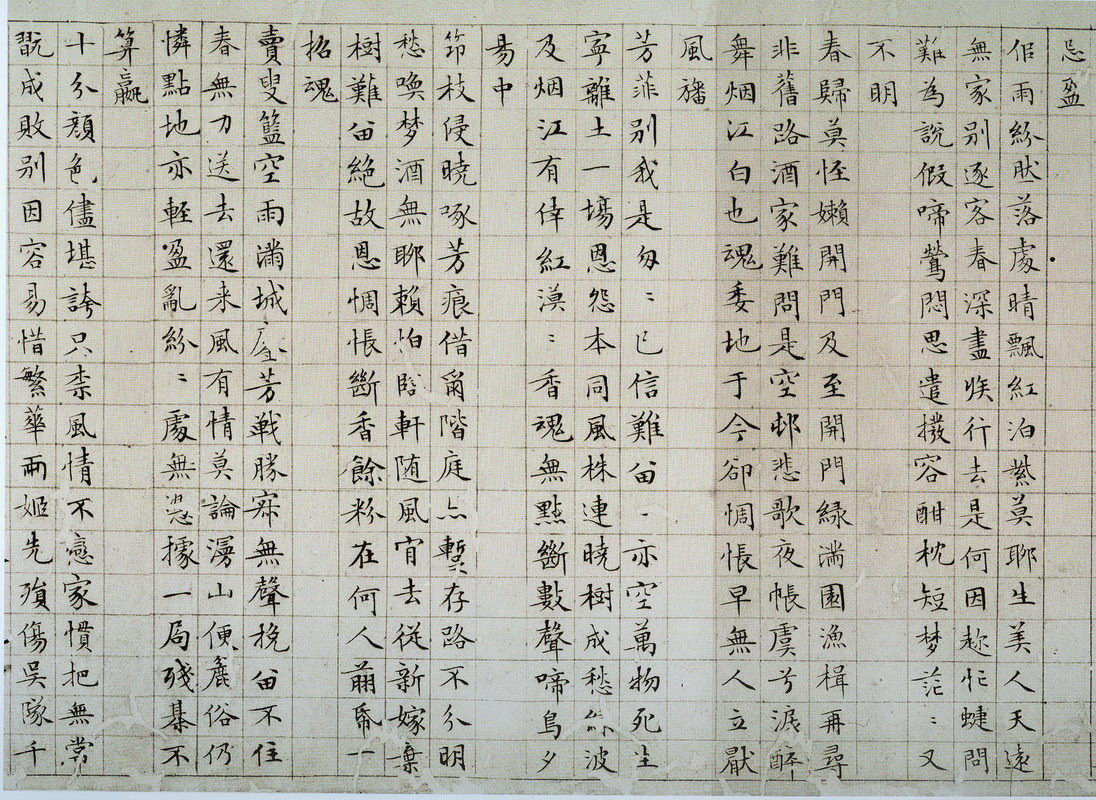 忌盈
佀雨紛然落處晴飄紅泊紫莫聊生美人天遠
無家別逐客春深盡族行去是何因趂忙蜨問
難為說假啼鶯悶思遣撥容酣枕短梦茫〻又
不明
春歸莫恠嬾開門及至開門緑滿園漁楫再尋
非舊路酒家難問是空邨悲歌夜帳虞兮淚醉
舞烟江白也魂委地于今卻惆悵早無人立厭
風旛
芳菲別我是匆〻已信難畱〻亦空萬物死生
寧離土一塲恩怨本同風株連曉樹成愁緑波
及烟江有倖紅漠〻香魂無點斷數聲啼鳥夕
昜中
笻枝侵曉啄芳痕借爾階庭亦暫存路不分明
愁喚梦酒無聊賴怕臨軒随風肓去從新嫁棄
樹難畱絶故恩惆悵斷香餘粉在何人剪帋一
招魂
賣叟籃空雨滿城芳戰勝寂無聲挽畱不住
春無力送去還来風有情莫論漫山便麄俗仍
憐點地亦輕盈亂紛〻處無憑據一局殘棊不
算贏
十分顔色儘堪誇只柰風情不戀家慣把無常
翫成敗別因容易惜繁華兩姬先殞傷吳隊千